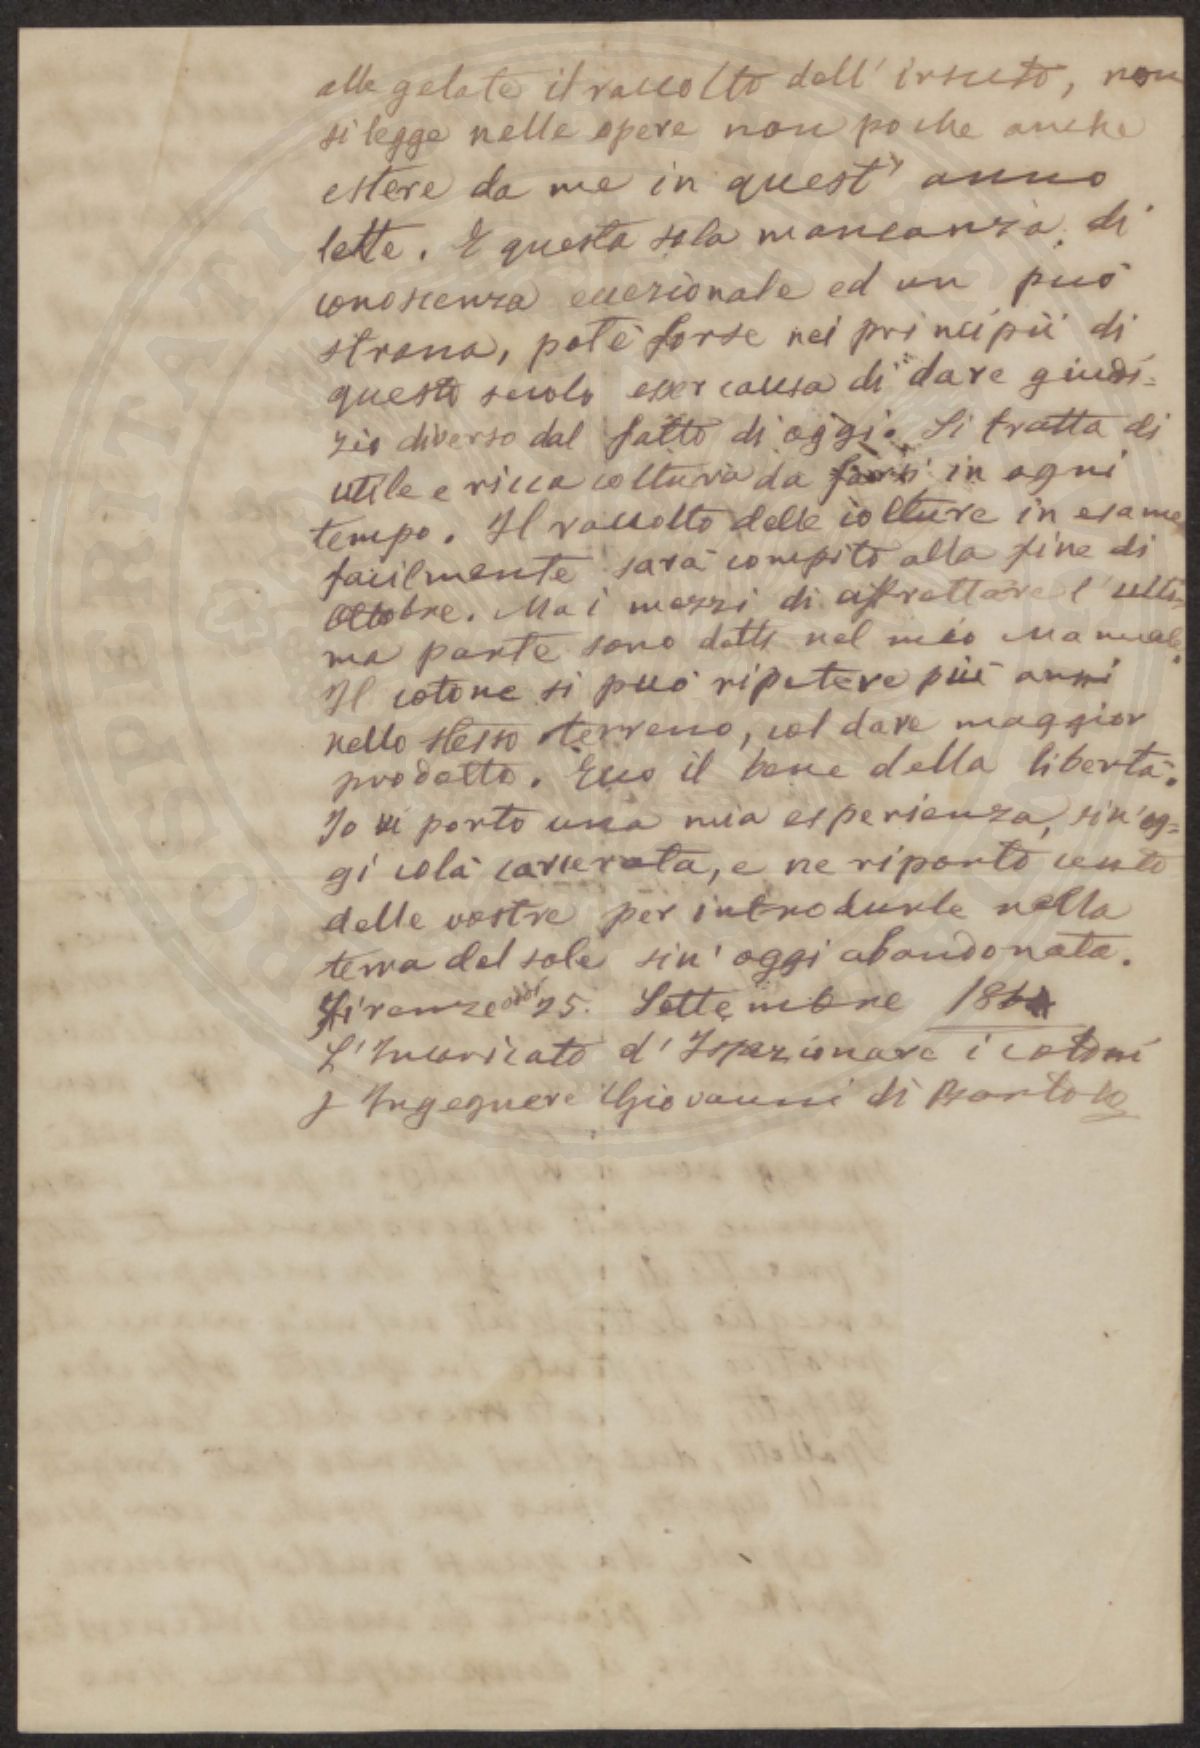 alle gelate il raccolto dell' irsuto, non
si legge nelle opere non poche anche
estere da me in quest' anno
lette. E questa sola mancanza di
conoscenza eccezionale ed un può
strana, potè forse nei principii di
questo secolo esser causa di dare giudi=
zio diverso dal fatto di oggi. Si tratta di
utile e ricca coltura da farsi in ogni
tempo. Il raccolto delle colture in esame
facilmente sarà compito alla fine di
Ottobre. Ma i mezzi di affrettare l' ulti=
ma parte sono detti nel mio Manuale.
Il cotone si può ripetere più anni
nello stesso terreno, col dare maggior
prodotto. Ecco il bene della libertà.
Io vi porto una mia esperienza, sin' og=
gi colà carcerata, e ne riporto cento
delle vostre per introdurle nella
terra del sole sin' oggi abandonata.
Firenze 25. Settembre 186
L' Incaricato d' Ispezionare i cotoni
Ingegnere Giovanni di Bartolo
PROSPERITATI